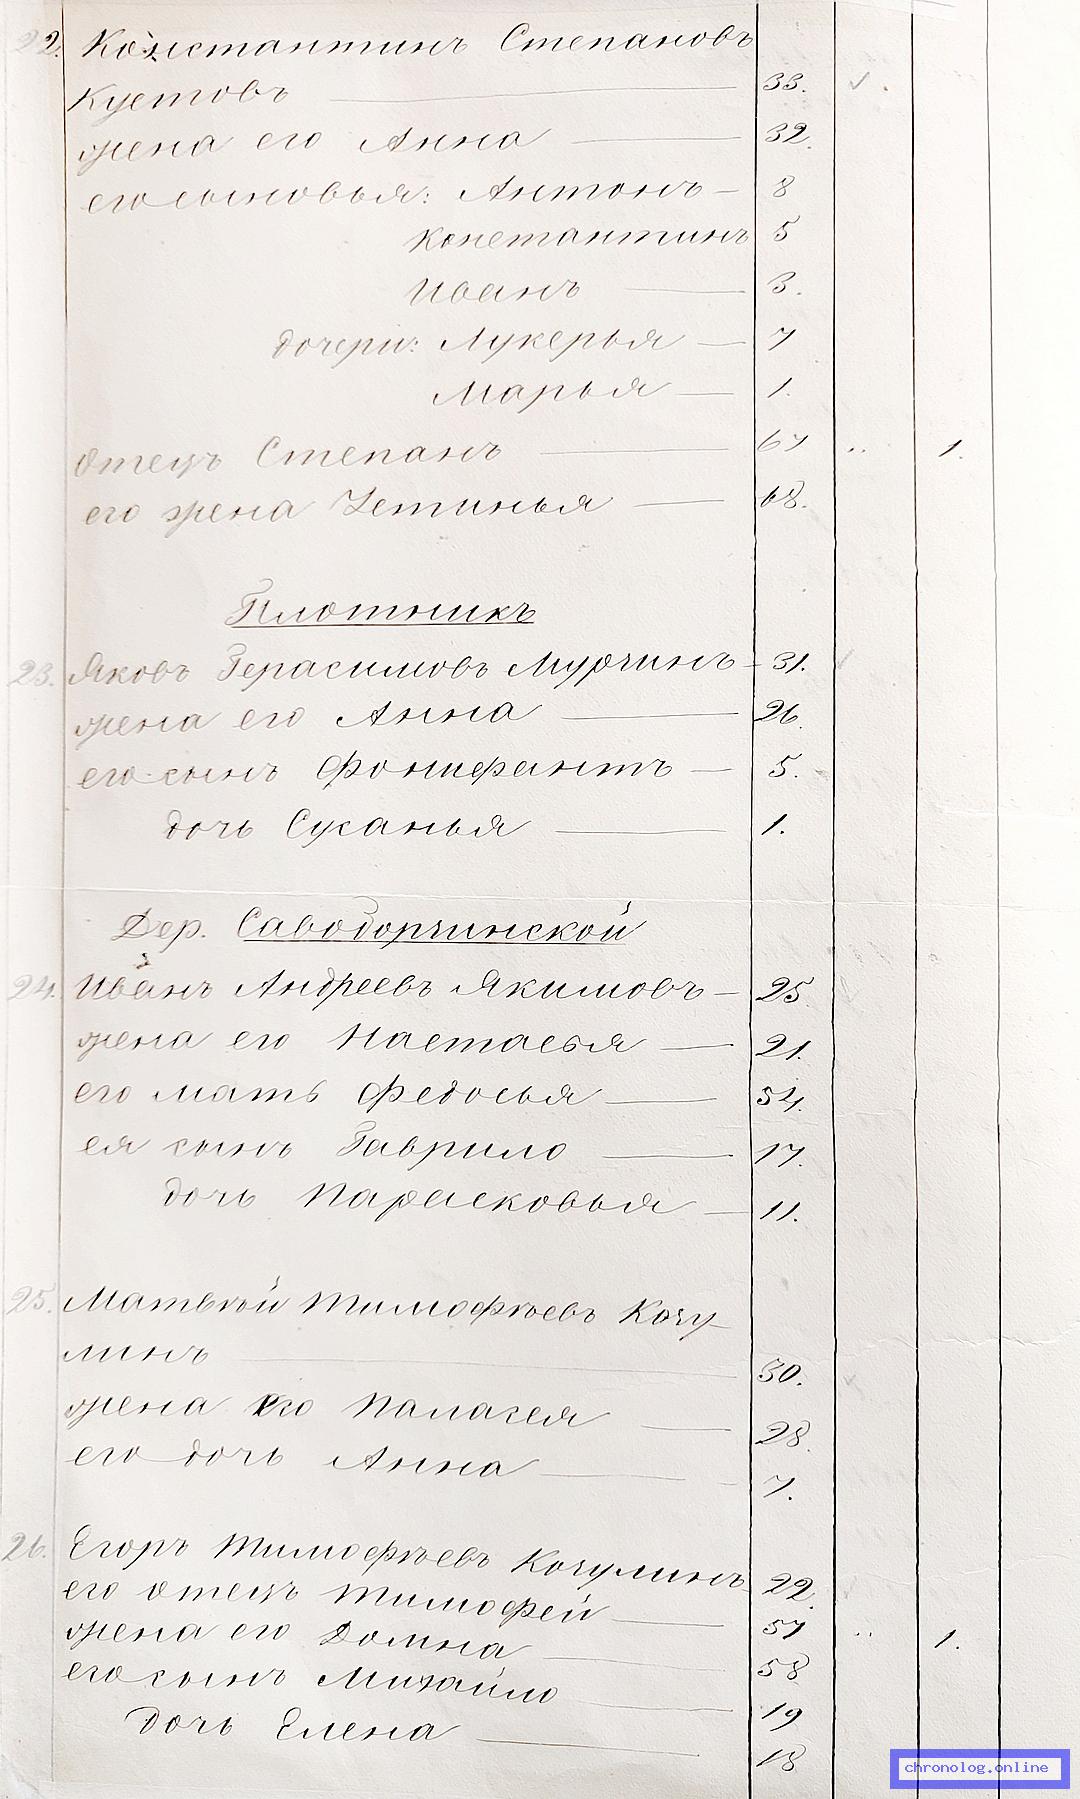 22. Константинъ Степановъ
Кустовъ 33.
жена его Анна 32.
его сыновья: Антонъ 8
Константинъ 5
Иванъ 3.
дочери: Лукерья 7
Марья 1.
отецъ Степанъ 67 1.
его жена Устинья 68.
Плотникъ
23. Яковъ Герасимовъ Мурчинъ 31.
жена его Анна 26.
его сынъ Фонифантъ 5.
дочь Сусанья 1.
Дер. Саводорчинской
24. Иванъ Андреевъ Якимовъ 25
жена его Настасья 21.
его мать Федосья 54.
ея сынъ Гаврило 17.
дочь Парасковья 11.
25. Матвѣй Тимофѣевъ Кочу-
линъ 30.
жена его Палагея 28.
его дочь Анна 7.
26. Егоръ Тимофѣевъ Кочулинъ 22.
его отецъ Тимофей 57 1.
жена его Домна 58
его сынъ Михайло 19
дочь Елена 18
chronolog.online